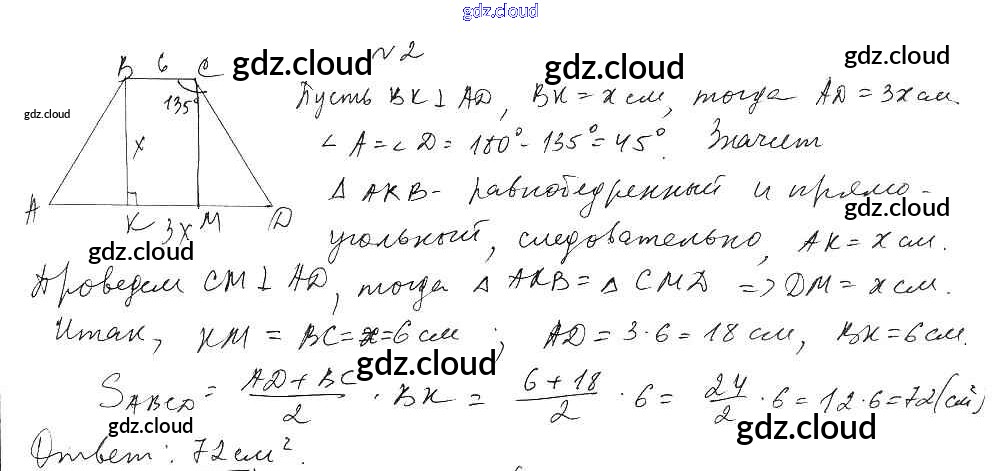 gdz.cloud
№2
B 6 C gdz.cloud gdz.cloud
135° Пусть BK ⊥ AD, BK = x см, тогда AD = 3x см.
gdz.cloud
x ∠A = ∠D = 180° - 135° = 45°. Значит
△ AKB - равнобедренный и прямо-
A K 3x M D gdz.cloud
угольный, следовательно, AK = x см.
gdz.cloud
Проведем CM ⊥ AD, тогда △ AKB = △ CMD => DM = x см.
Итак, KM = BC = x = 6 см; AD = 3·6 = 18 см, BK = 6 см.
gdz.cloud gdz.cloud
S ABCD = (AD + BC)/2 · BK = (6 + 18)/2 · 6 = 24/2 · 6 = 12 · 6 = 72 (см²)
gdz.cloud gdz.cloud gdz.cloud
Ответ: 72 см².